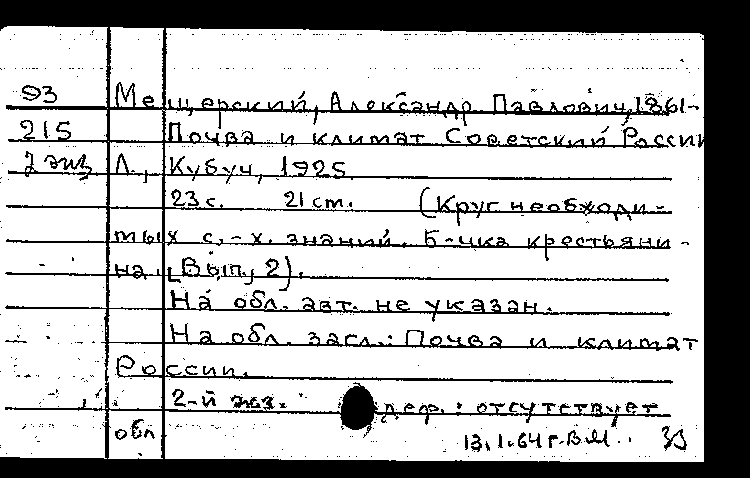 93 Мещерский, Александр Павлович, 1861-
215 Почва и климат Советский России
2 экз Л., Кубуч, 1925.
23 с. 21 ст. (Круг необходи-
мых с.-х. знаний. Б-чка крестьяни-
на. [Вып., 2).
На обл. авт. не указан.
На обл. загл.: Почва и климат
России.
2-й экз. деф.: отсутствует
обл 13.1.64 г. В.М.